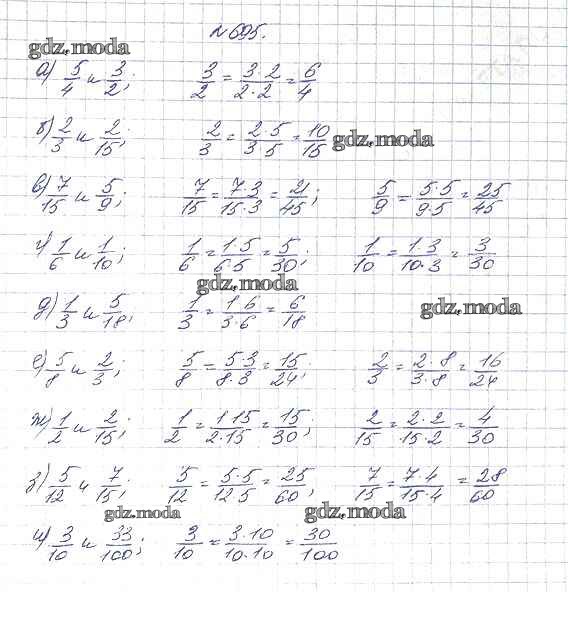 № 695.
gdz.moda
а) 5/4 и 3/2; 3/2 = 3·2/2·2 = 6/4
б) 2/3 и 2/15; 2/3 = 2·5/3 5 = 10/15 gdz.moda
в) 7/15 и 5/9; 7/15 = 7·3/15·3 = 21/45; 5/9 = 5·5/9·5 = 25/45
г) 1/6 и 1/10; 1/6 = 1·5/6·5 = 5/30; 1/10 = 1·3/10·3 = 3/30
gdz.moda
д) 1/3 и 5/18; 1/3 = 1·6/3·6 = 6/18 gdz.moda
е) 5/8 и 2/3; 5/8 = 5·3/8·3 = 15/24; 2/3 = 2·8/3·8 = 16/24
ж) 1/2 и 2/15; 1/2 = 1·15/2·15 = 15/30; 2/15 = 2·2/15·2 = 4/30
з) 5/12 и 7/15; 5/12 = 5·5/12·5 = 25/60; 7/15 = 7·4/15·4 = 28/60
gdz.moda gdz.moda
и) 3/10 и 33/100; 3/10 = 3·10/10·10 = 30/100